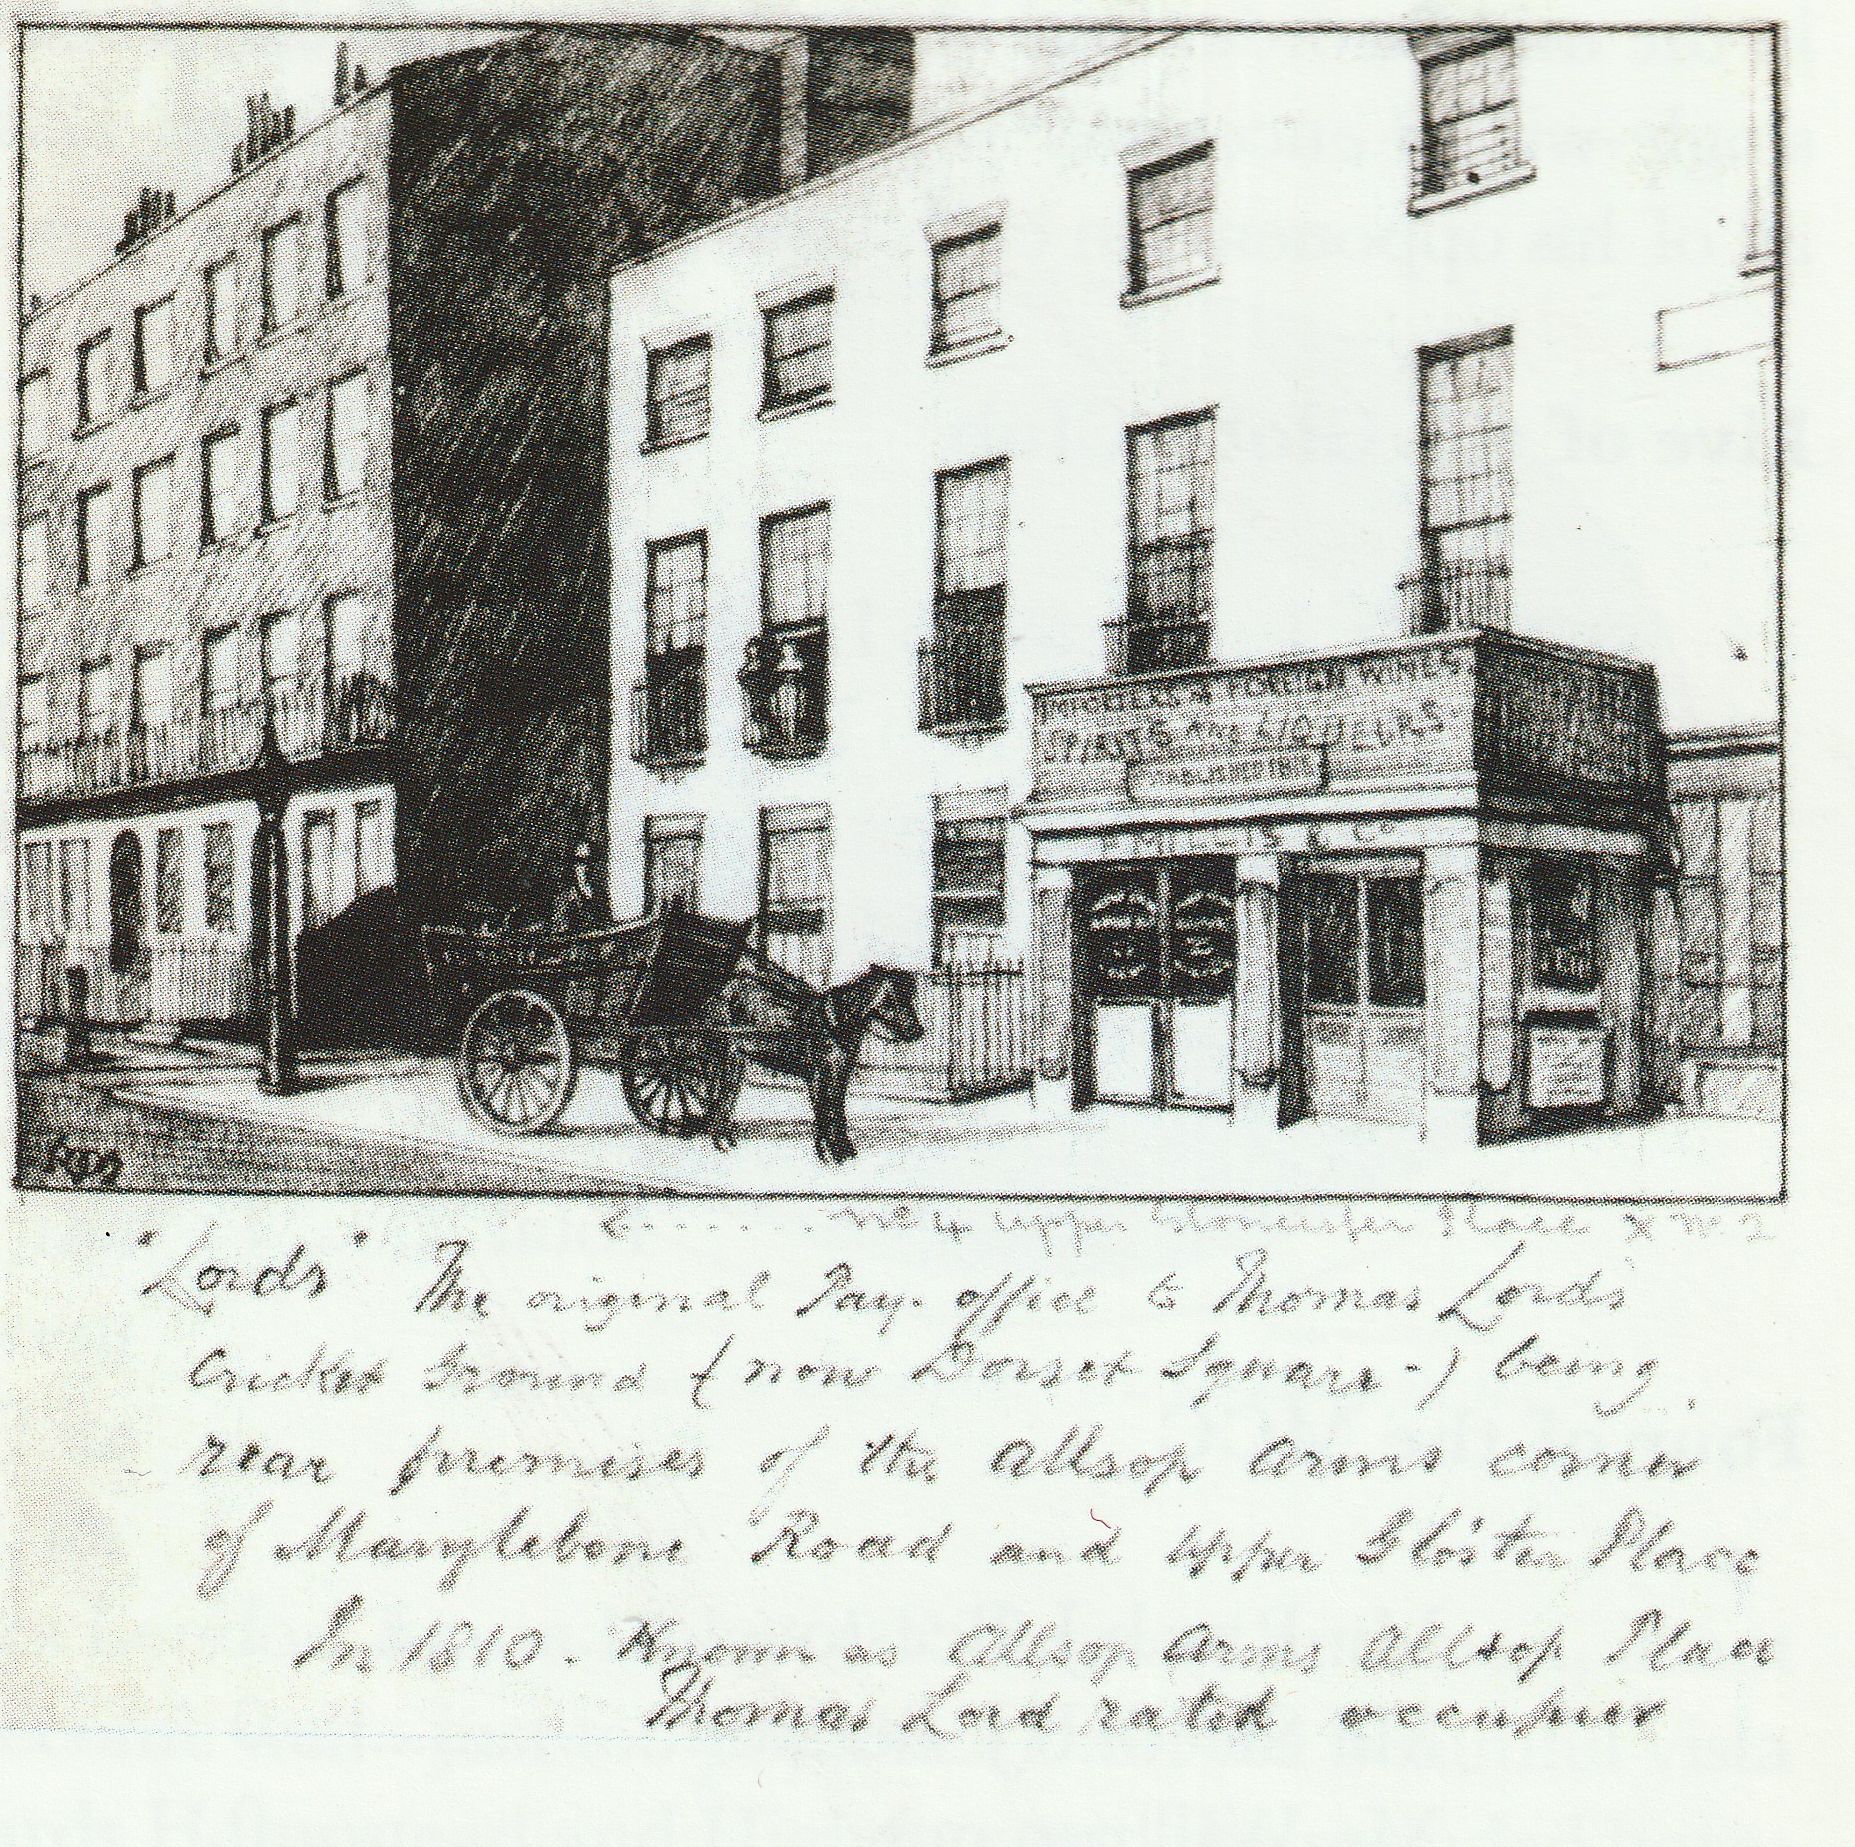 & FOREIGN WINES
SPIRITS AND LIQUEURS
& Co
No 4 Upper Gloucester Place & No 2
"Lords" The original Pay-office to Thomas Lord's
Cricket Ground (now Dorset Square-) being
rear premises of the Allsop Arms corner
of Marylebone Road and Upper Glo'ster Place
In 1810. Known as Allsop Arms Allsop Place
Thomas Lord rated occupier